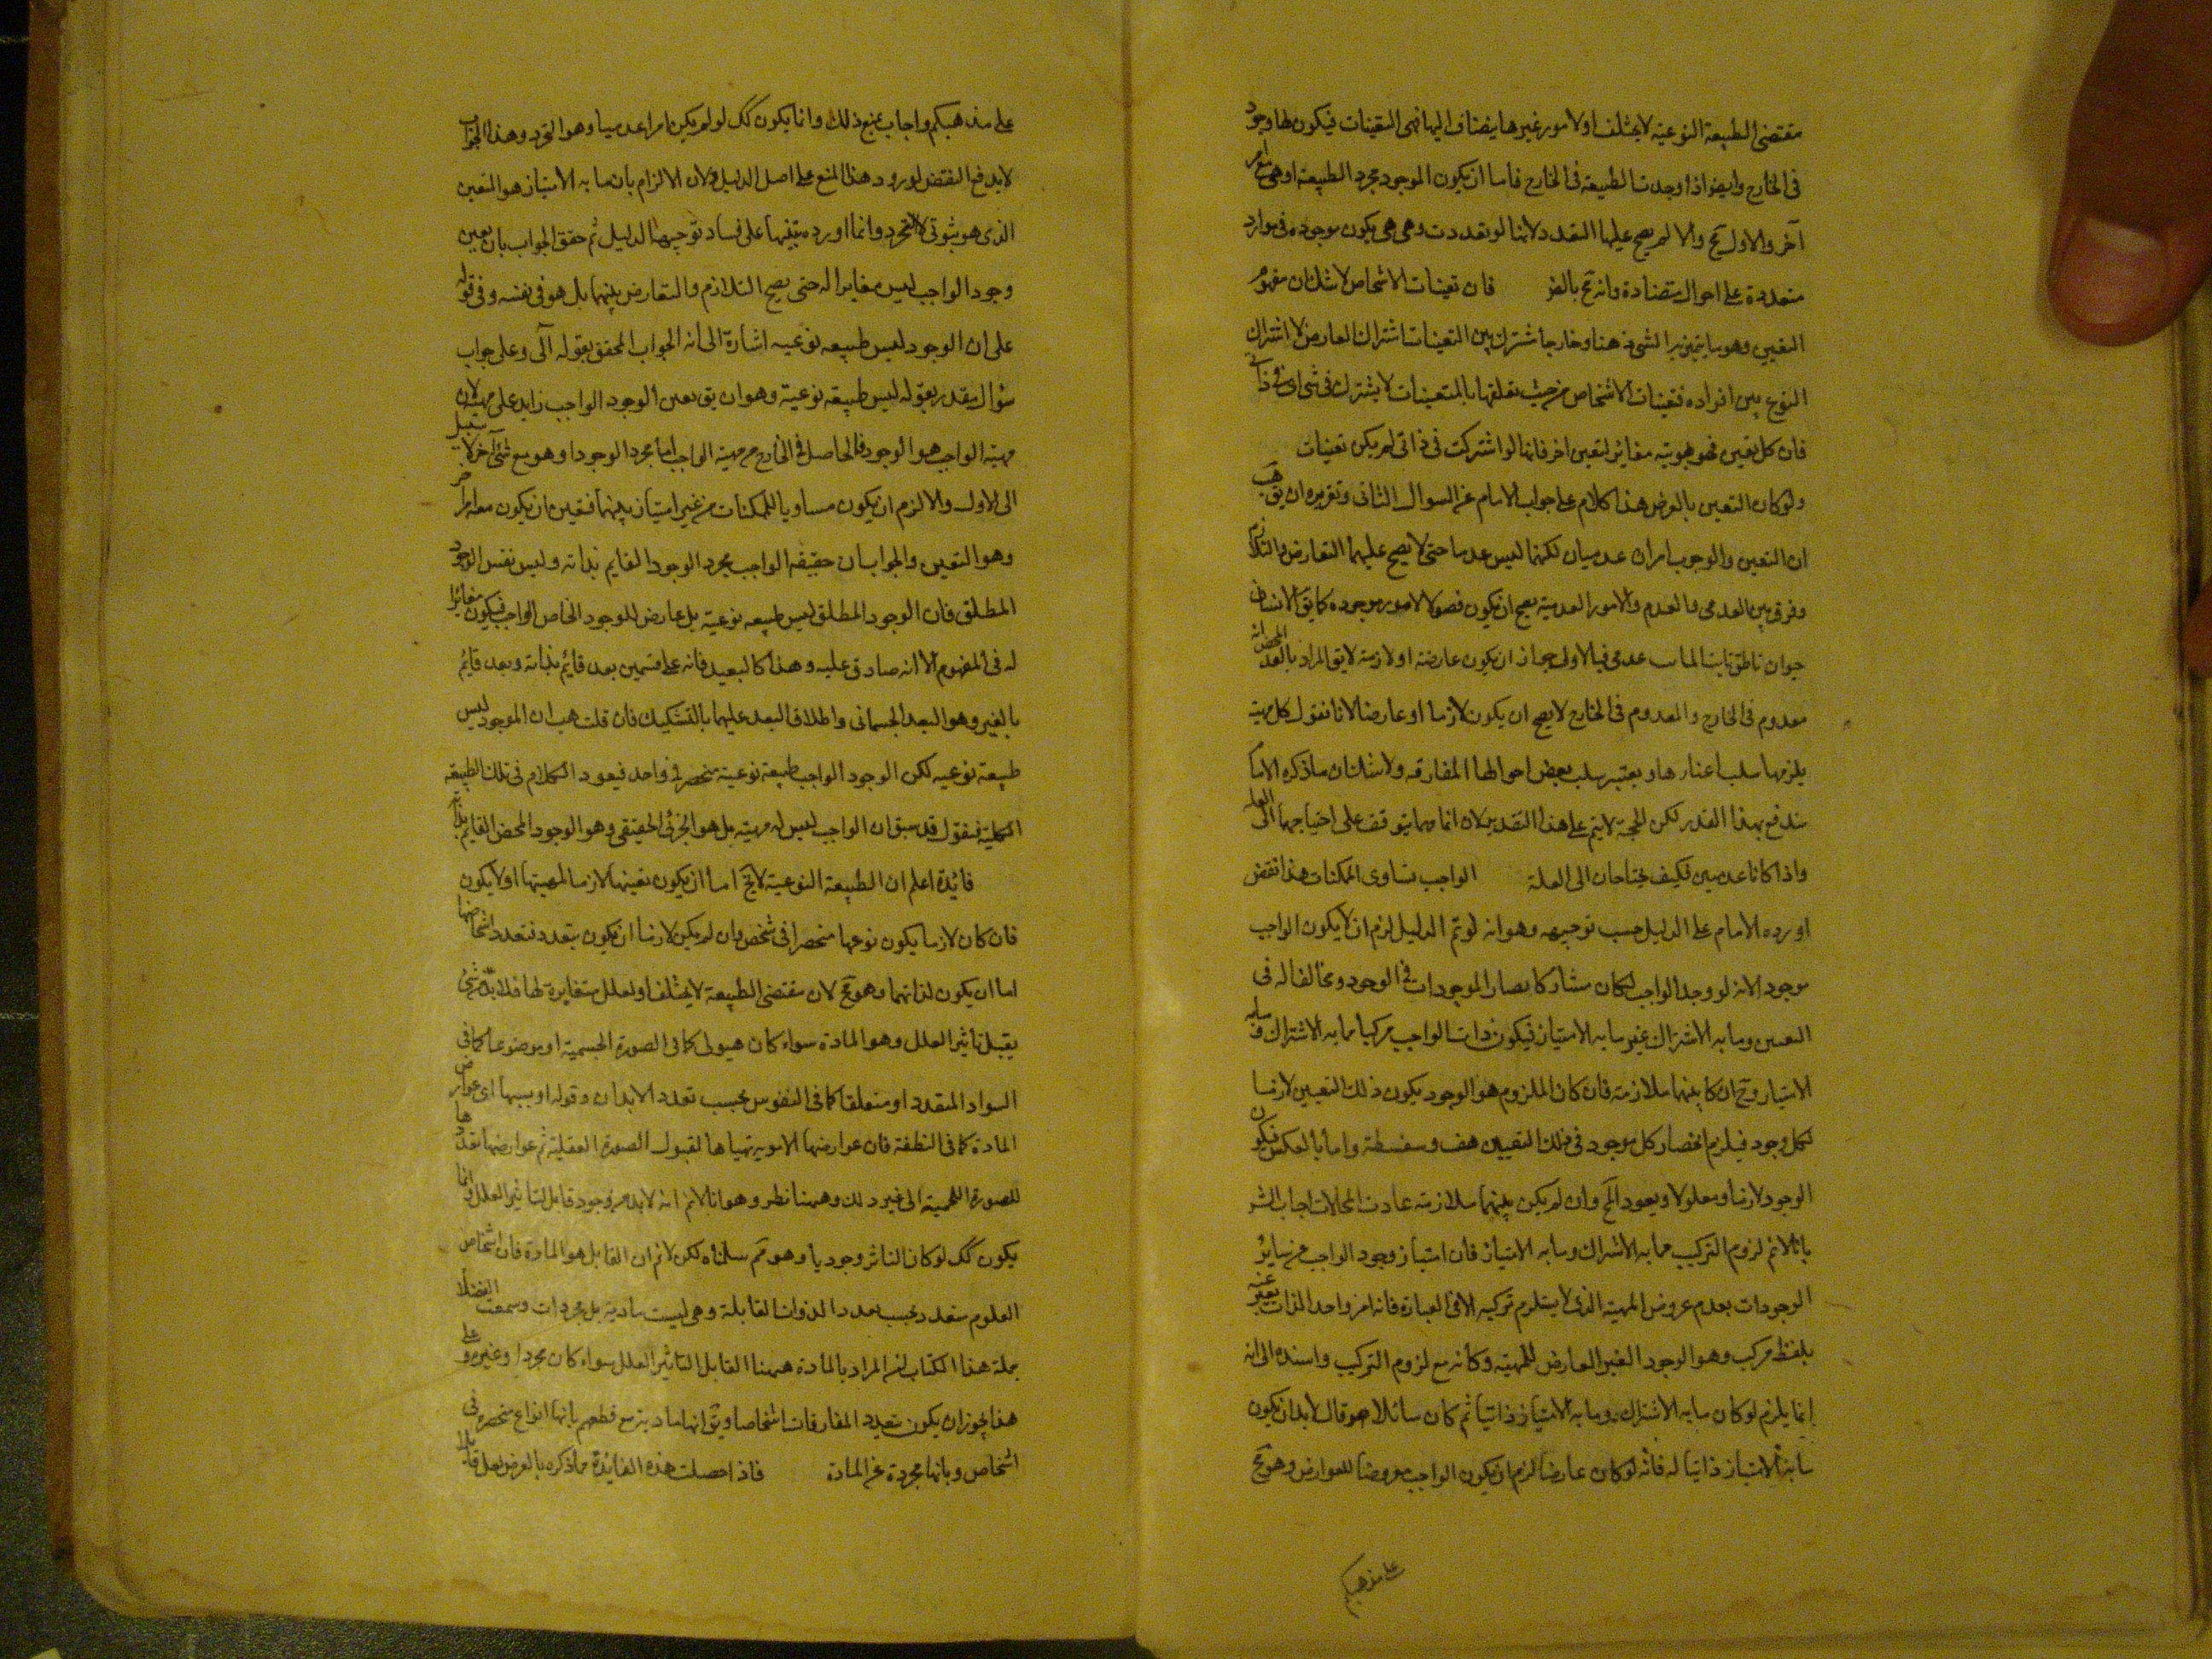 مقتضى الطبيعة النوعية لا يختلف او لامور غيرها ينضاف اليها فهى التعينات فيكون لها وجود
فى الخارج وايضا اذا وجدت الطبيعة فى الخارج فاما ان يكون الموجود مجرد الطبيعة او هى مع امر
آخر والاول مح والا لم يصح عليها التعدد لانها لو تعددت وهى هى يكون موجوده فى موارد
متعددة على احوال متضادة وانه مح بالضر فان تعينات الاشخاص لا شك ان مفهوم
التعين وهو ما يتميز به الشئ ذهنا وخارجا مشترك بين التعينات اشتراك العارض لا اشتراك
النوع بين افراده فتعينات الاشخاص من حيث تعلقها بالمتعينات لا يشترك فى شئ اى فى ذاتى
فان كل تعين فهو بهويته مغائر لتعين اخر فانها لو اشتركت فى ذاتى لم يكن تعينات
ولو كان التعين بالعرض هذا كلام على جواب الامام عن السوال الثانى وتقريره ان يق هب
ان التعين والوجوب امران عدميان لكنهما ليس عدما حتى لا يصح عليهما التعارض والتلازم
وفرق بين العدمى والعدم والامور العدمية يصح ان يكون فصولا لامور موجوده كما يق الانسان
حيوان ناطق مائت عدمى فبالاولى جواز ان يكون عارضة او لازمة لا يق المراد بالعدمى انه
معدوم فى الخارج والمعدوم فى الخارج لا يصح ان يكون لازما او عارضا لانا نقول كل مهية
يلزمها سلب اغيارها ويعتبر سلب بعض احوالها المفارقه ولا شك ان ما ذكره الامام
يندفع بهذا القدر لكن الحجة لا يتم على هذا التقدير لان اتمامها يتوقف على احتياجهما الى العلة
واذا كانا عدميين فكيف يحتاجان الى العلة الواجب يساوى الممكنات هذا نقض
اورده الامام على الدليل حسب توجيهه وهو انه لو تم الدليل لزم ان لا يكون الواجب
موجودا لانه لو وجد الواجب لكان مشاركا لسائر الموجودات فى الوجود ومخالفا له فى
التعين وما به الاشتراك غير ما به الامتياز فيكون ذات الواجب مركبا مما به الاشتراك و ما به
الامتياز وح ان كان بينهما ملازمة فان كان الملزوم هو الوجود يكون ذلك التعين لازما
لكل وجود فيلزم انحصار كل موجود فى ذلك التعين هف وسفسطة واما بالعكس فيكون
الوجود لازما ومعلولا ويعود المح وان لم يكن بينهما ملازمة عادت المحالات اجاب الشر
بانا لانم لزوم التركيب مما به الاشتراك وما به الامتياز فان امتياز وجود الواجب عن ساير
الوجودات بعدم عروض المهية الذى لا يستلزم تركبه الا فى العبارة فانه امر واحد الذات يعبر عنه
بلفظ مركب وهو الوجود الغير العارض للمهية وكانه منع لزوم التركيب واسنده الى انه
انما يلزم لو كان ما به الاشتراك وما به الامتياز ذاتيا ثم كان سائلا هو قال لا بد ان يكون
ما به الامتياز ذاتيا له فانه لو كان عارضا لزم ان يكون الواجب معروضا للعوارض وهو مح
على مذهبكم
على مذهبكم واجاب بمنع ذلك وانما يكون كك لو لم يكن امرا عدميا وهو التجرد وهذا الجواب
لا يدفع النقض لورود هذا المنع على اصل الدليل ولان الالزام بان ما به الامتياز هو التعين
الذى هو ثبوتى لا التجرد وانما اورده تنبيها على فساد توجيهه الدليل ثم حقق الجواب بان تعين
وجود الواجب ليس مغايرا له حتى يصح التلازم والتعارض بينهما بل هو فى نفسه وفى قوله
على ان الوجود ليس طبيعه نوعيه اشارة الى انه الجواب المحقق بقوله آلى وعلى جواب
سؤال مقدر بقوله ليس طبيعه نوعية وهو ان يق تعين الوجود الواجب زايد على مهيته لان
مهية الواجب هو الوجود فالحاصل فى الخارج من مهية الواجب اما مجرد الوجود او هو مع شئ آخر لا سبيل
الى الاول والا لزم ان يكون مساويا للممكنات من غير امتياز بينهما فتعين ان يكون معه امر اخر
وهو التعين والجواب ان حقيقه الواجب مجرد الوجود القايم بذاته وليس نفس الوجود
المطلق فان الوجود المطلق ليس طبيعه نوعية بل عارض للوجود الخاص الواجب فيكون مغائرا
له فى المفهوم الا انه صادق عليه وهذا كالبعد فانه على قسمين بعد قائم بذاته وبعد قائم
بالغير وهو البعد الجسمانى واطلاق البعد عليهما بالتشكيك فان قلت هب ان الموجود ليس
طبيعة نوعيه لكن الوجود الواجب طبيعة نوعية منحصر فى واحد فيعود الكلام فى تلك الطبيعة
الكلية فنقول قد سبق ان الواجب ليس له مهية بل هو الجزئى الحقيقى وهو الوجود المحض القايم بذاته
فائدة اعلم ان الطبيعة النوعية لا يخ اما ان يكون تعينها لازما لمهيتها او لا يكون
فان كان لازما يكون نوعها منحصرا فى شخص وان لم يكن لازما ان يكون يتعدد فتعدد اشخاصها
اما ان يكون لذاتها وهو مح لان مقتضى الطبيعة لا يختلف او لعلل متغايرة لها فلا بد من شئ
يقبل تاثير العلل وهو المادة سواء كان هيولى كما فى الصورة الجسمية او موضوعا كما فى
السواد المتعدد او متعلقا كما فى النفوس بحسب تعدد الابدان وقوله او بسببها اى عوارض
المادة كما فى النطفة فان عوارضها الاموية تهياها لقبول الصورة العقلية ثم عوارضها تعدها
للصورة اللحمية الى غير ذلك وههنا نظر وهو انا لانم انه لا بد من وجود قابل لتاثير العلل وانما
يكون كك لو كان التاثر وجوديا وهو مم سلمناه لكن لانم ان القابل هو المادة فان اشخاص
العلوم متعدد بحسب تعدد الذوات القابلة وهى ليست مادية بل مجردات وسمعت الفضلا
جملة هذا الكتاب ان المراد بالمادة ههنا القابل لتاثير العلل سواء كان مجردا او غيره وعلى
هذا يجوز ان يكون تعدد المفارقات اشخاصا ويق انها مادية مع قطعهم بانها انواع منحصرة فى
اشخاص وبانها مجردة عن المادة فاذا حصلت هذه الفائدة مما ذكره بالعرض